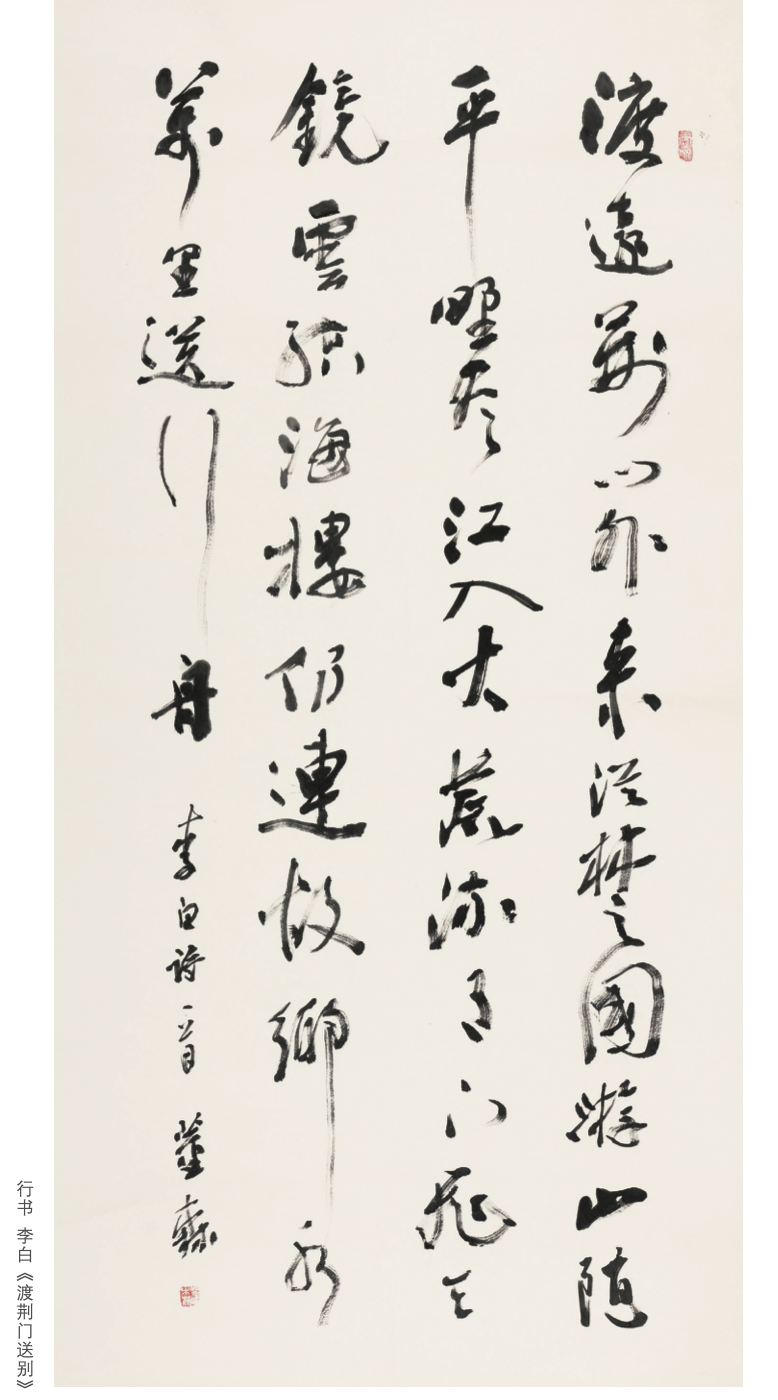 渡遠荊門外來從楚國游山随
平野尽江入大荒流月下飛天
鏡雲結海樓仍連故鄉水
萬里送行舟 李白詩一首
行书 李白《渡荆门送别》